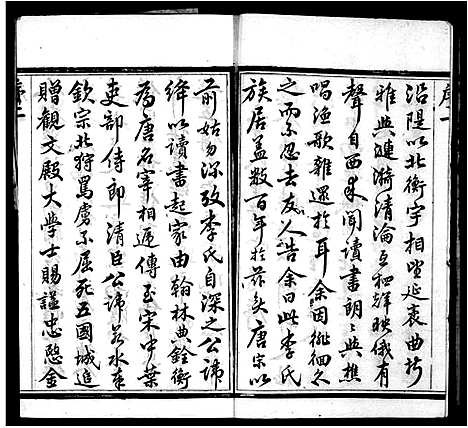 序一
沿隄以北衡宇相望延袤曲折
雅與漣漪清淪互相輝映俄有
聲自西來聞讀書朗朗與樵
唱漁歌雜遝於耳余因徘徊久
之而不忍去友人告余曰此李氏
族居盖數百年於茲矣唐宗以
前姑勿深攷李氏自深之公諱
絳以讀書起家由翰林典銓衡
為唐名宰相遞傳至宋中葉
吏部侍郎清臣公諱若水奉
欽宗北狩罵虜不屈死五國城追
贈觀文殿大學士賜諡忠愍金
序二